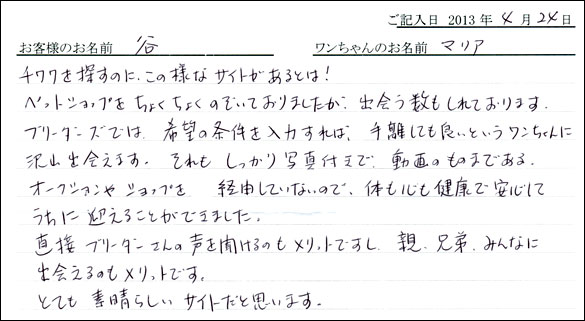 ご記入日 2013 年 4 月 24 日
お客様のお名前 谷 ワンちゃんのお名前 マリア
チワワを探すのに、この様なサイトがあるとは！
ペットショップをちょくちょくのぞいておりましたが、出会う数もしれております。
ブリーダーズでは、希望の条件を入力すれば、手離しても良いというワンちゃんに
沢山出会えます。それも しっかり写真付きで、動画のものまである。
オークションや ショップを 経由していないので、体も心も健康で安心して
うちに 迎えることができました。
直接 ブリーダーさんの声を聞けるのもメリットですし、親、兄弟、みんなに
出会えるのもメリットです。
とても 素晴らしい サイトだと思います。